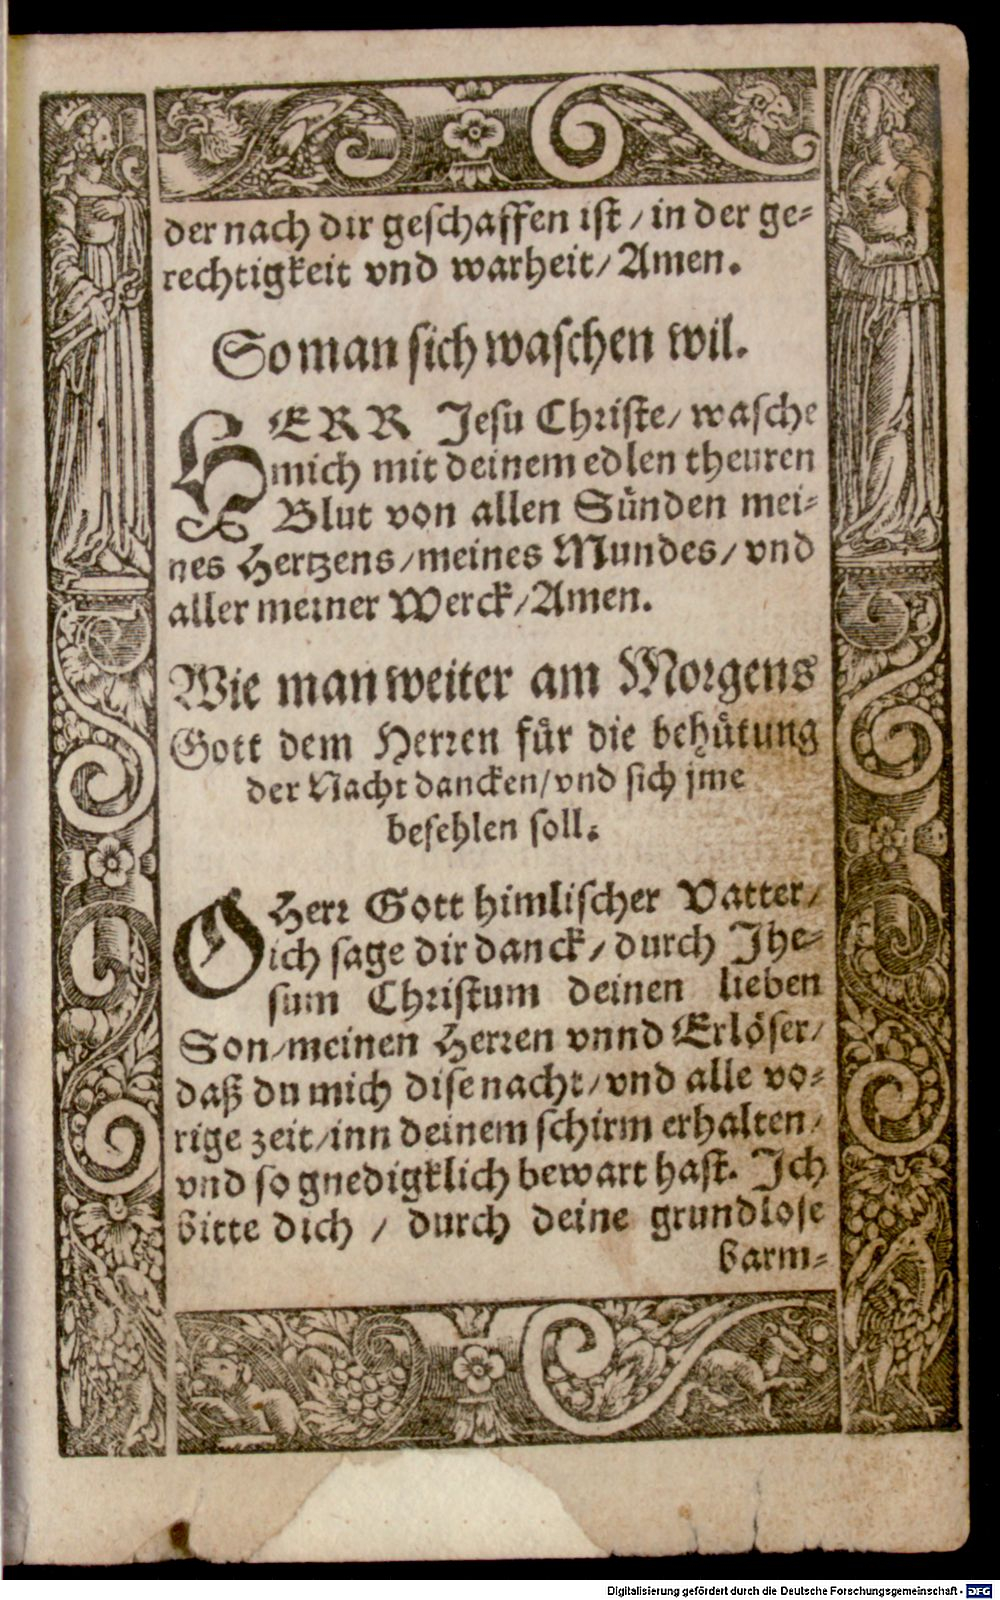 der nach dir geschaffen ist / in der ge=
rechtigkeit vnd warheit / Amen.
So man sich waschen wil.
HERR Jesu Christe / wasche
mich mit deinem edlen theuren
Blut von allen Sünden mei=
nes Hertzens / meines Mundes / vnd
aller meiner Werck / Amen.
Wie man weiter am Morgens
Gott dem Herren für die behütung
der Nacht dancken / vnd sich jme
befehlen soll.
O Herr Gott himlischer Vatter /
ich sage dir danck / durch Jhe=
sum Christum deinen lieben
Son / meinen Herren vnnd Erlöser /
daß du mich dise nacht / vnd alle vo=
rige zeit / inn deinem schirm erhalten /
vnd so gnedigklich bewart hast. Ich
bitte dich / durch deine grundlose
barm=
Digitalisierung gefördert durch die Deutsche Forschungsgemeinschaft - DFG